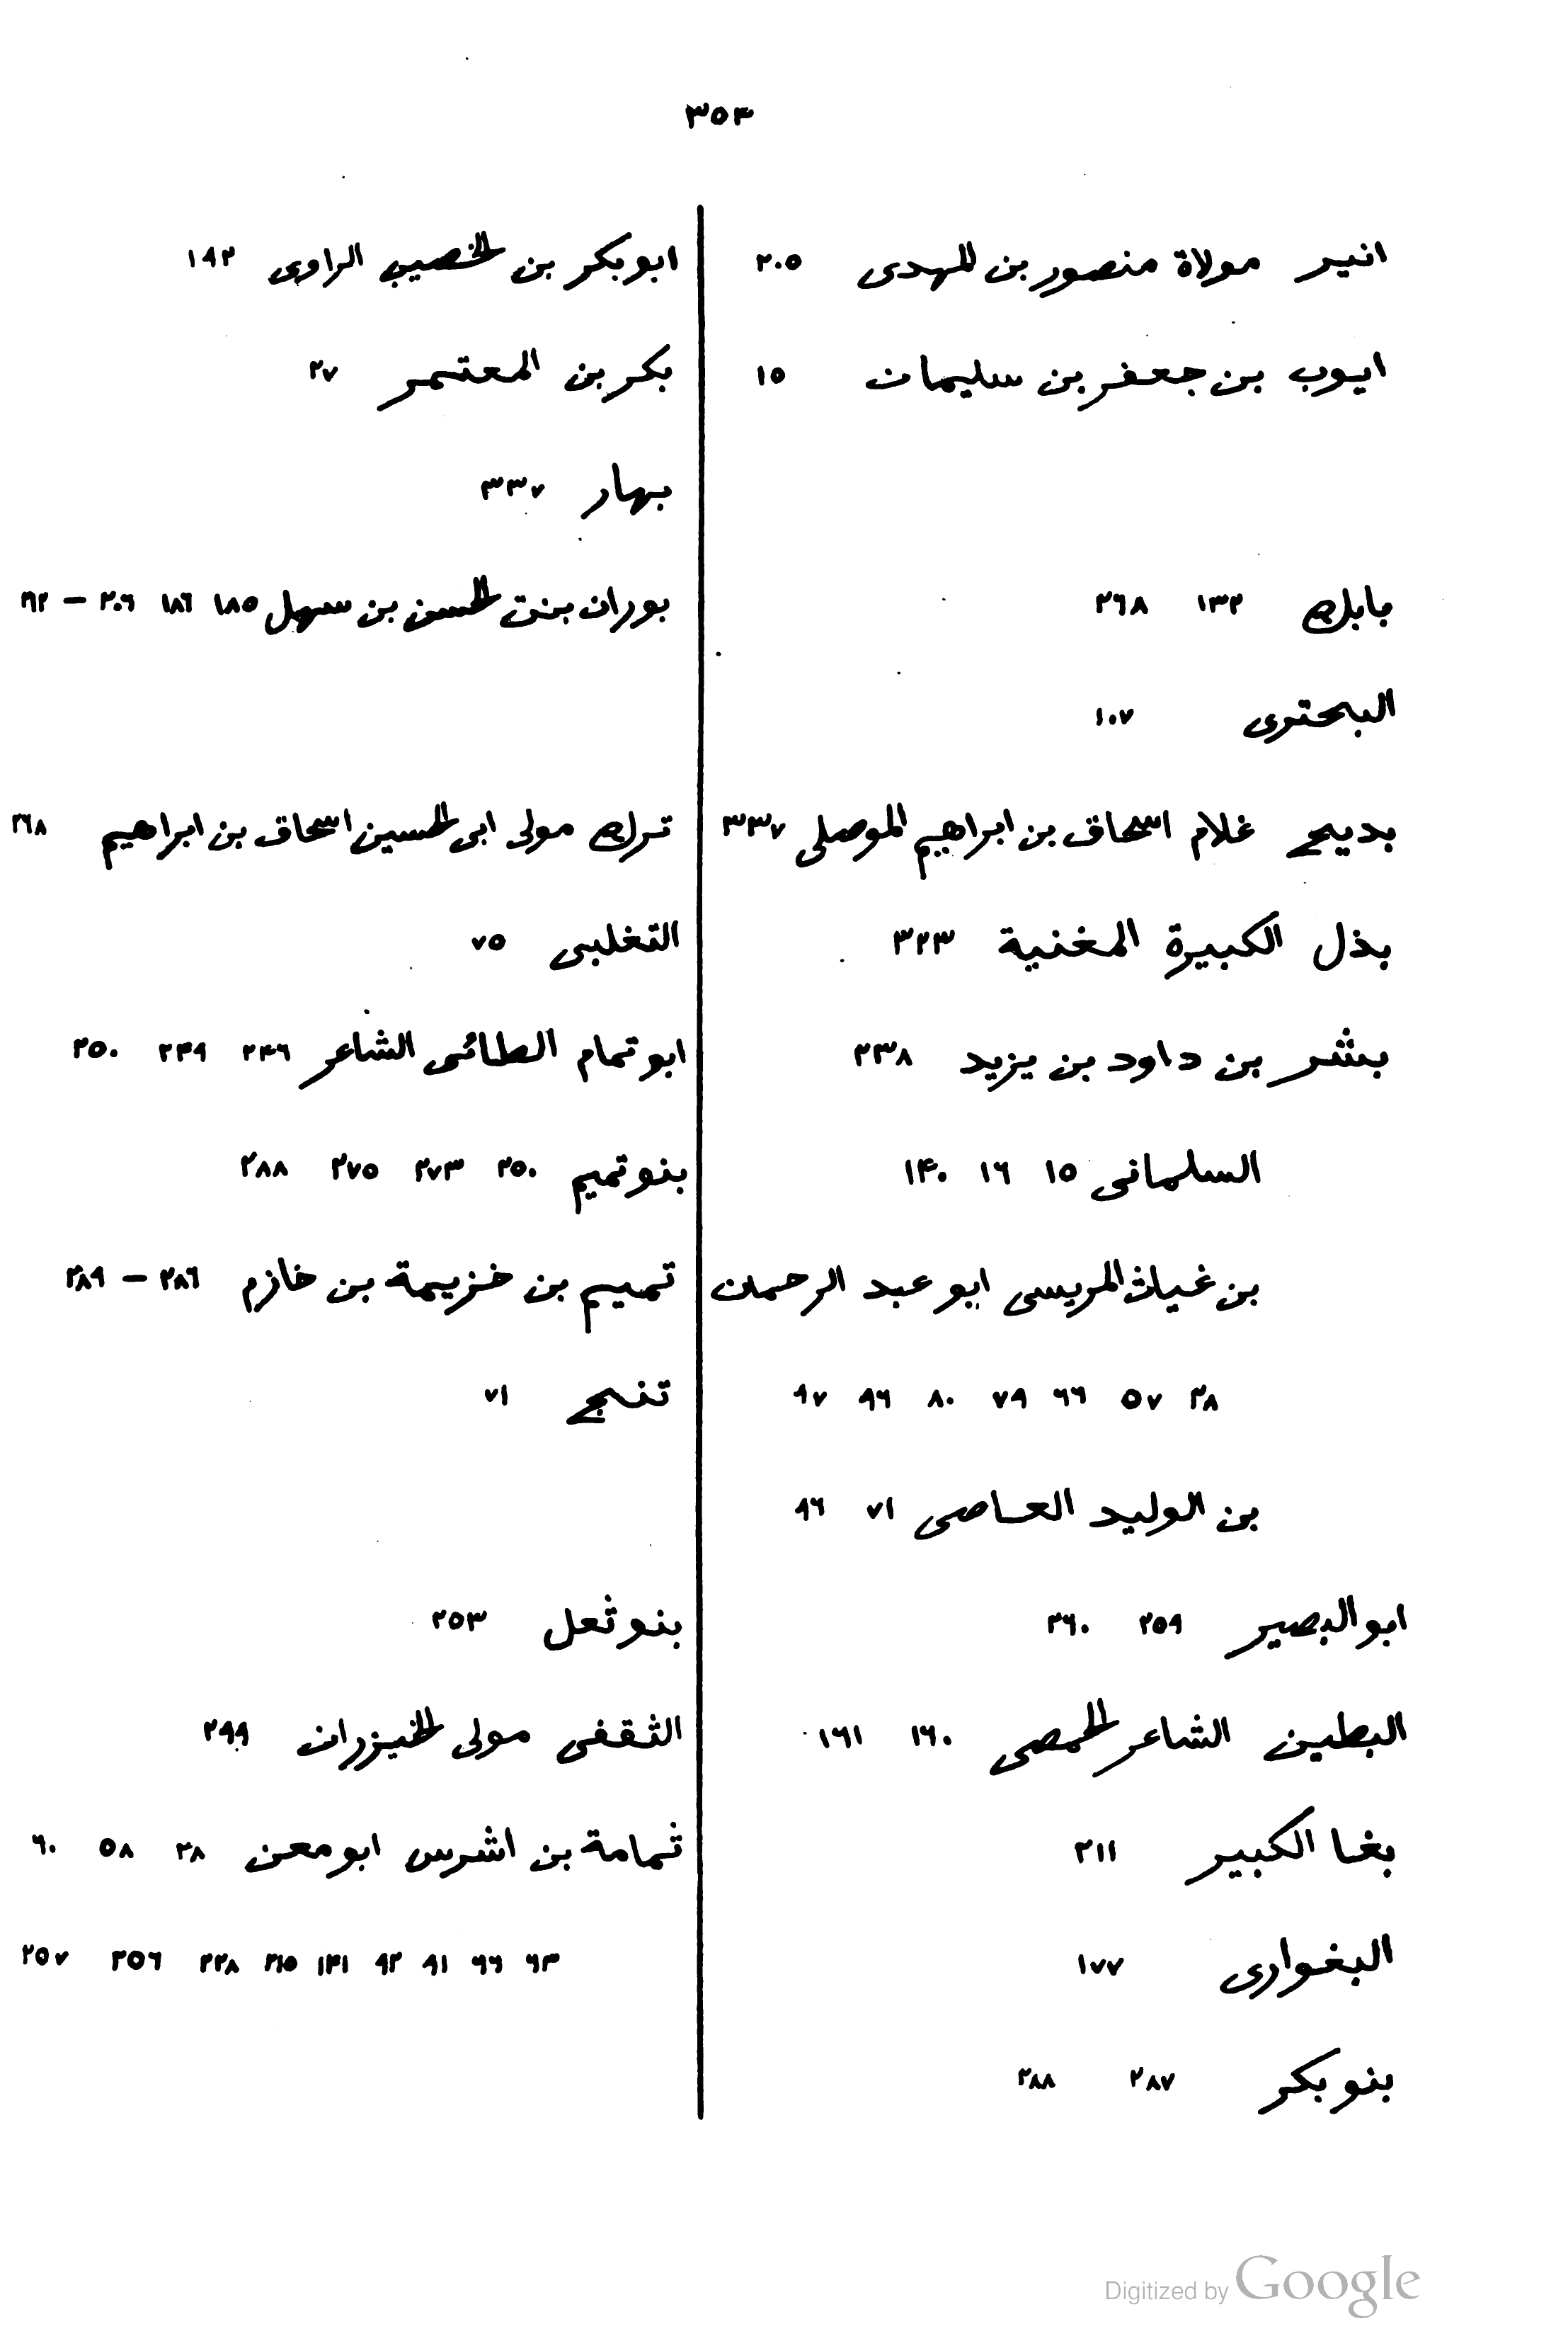 ٣٥٣
انير مولاة منصور بن المهدى ٢٠٥
ايوب بن جعفر بن سليمان ١٥
بابك ١٣٢ ٢٦٨
البحترى ١٠٧
بديح غلام اسحاق بن ابراهيم الموصلى ٣٣٧
بذل الكبيرة المغنية ٣٢٣
بشر بن داود بن يزيد ٢٣٨
السلمانى ١٥ ١٦ ١٤٠
بن غياث المريسى ابو عبد الرحمان
٢٨ ٥٧ ٦٦ ٧٩ ٨٠ ٩٦ ٩٧
بن الوليد العاصى ٧١ ٩٦
ابو البصير ٢٥٩ ٢٦٠
البطين الشاعر الحمصى ١٦٠ ١٦١
بغا الكبير ٢١١
البغوارى ١٧٧
بنو بكر ٢٨٧ ٢٨٨
ابو بكر بن الخصيب الراوى ١٩٢
بكر بن المعتمر ٢٧
بهار ٣٣٧
بوران بنت الحسن بن سهل ١٨٥ ١٨٦ ٢٠٦ –
ترك مولى ابى الحسين اسحاق بن ابراهيم ٢٦٨
التغلبى ٧٥
ابو تمام الطائى الشاعر ٢٤٦ ٢٤٩ ٢٥٠
بنو تميم ٢٥٠ ٢٧٣ ٢٧٥ ٢٨٨
تميم بن خزيمة بن خازم ٢٨٦ – ٢٨٩
تنبج ٧١
بنو ثعل ٢٥٣
الثقفى مولى الخيزران ٢٩٩
ثمامة بن اشرس ابو معن ٣٨ ٥٨ ٦٠
٦٣ ٦٦ ٩١ ٩٢ ١٤١ ٢١٥ ٢٢٨ ٢٥٦ ٢٥٧
Digitized by Google